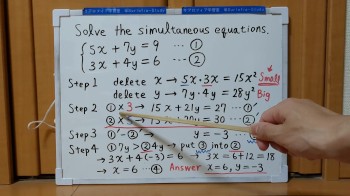 Solve the simultaneous equations.
5x + 7y = 9 … ①
3x + 4y = 6 … ②
Step 1 delete x → 5x・3x = 15x² Small
delete y → 7y・4y = 28y² Big
Step 2 ① × 3 → 15x + 21y = 27 … ①'
② × 20y = 30 … ②'
Step 3 ①' - ②' → y = -3
Step 4 ① 7y > ② 4y → put ③ into ②
→ 3x + 4(-3) = 6 3x = 6 + 12 = 18
→ x = 6 … ④ Answer x = 6, y = -3